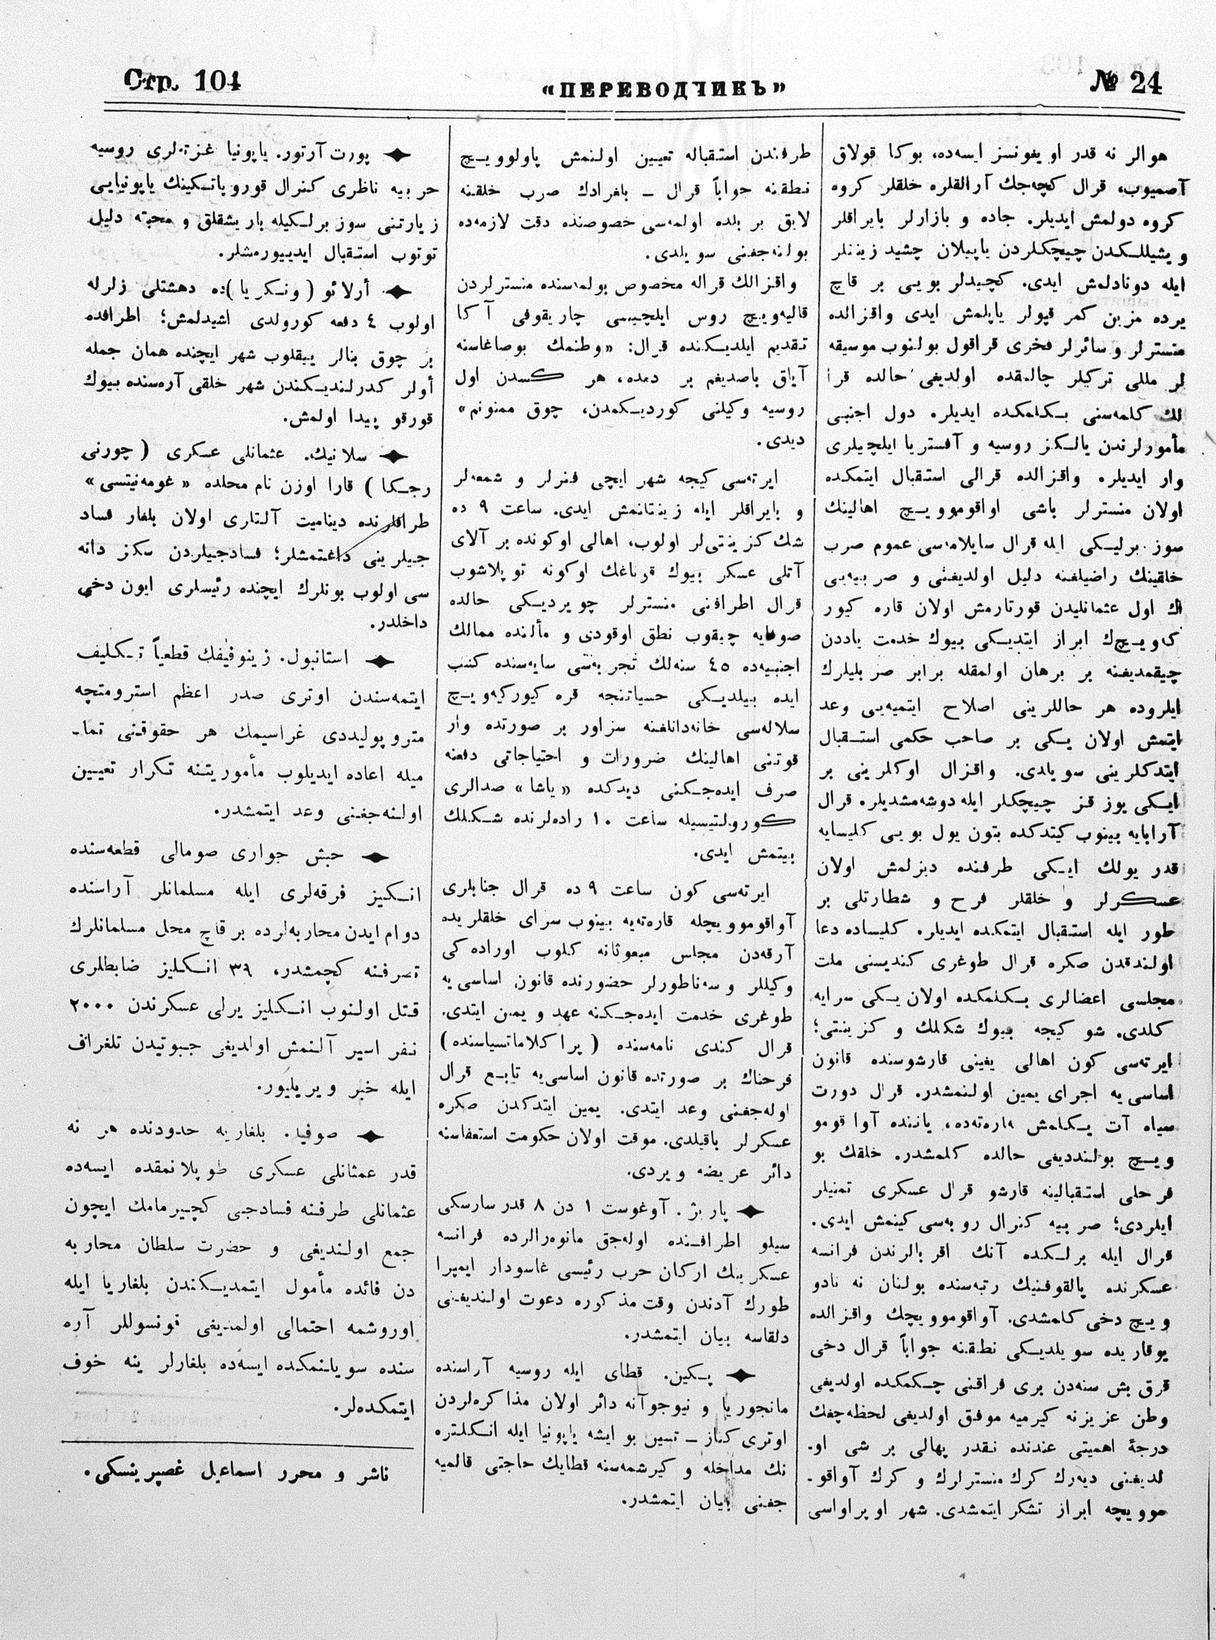 Стр. 104
«ПЕРЕВОДЧИКЪ»
№ 24
هوالر نه قدر اویغونسز ایسه‌ده، بوکا قولاق
آصمیوب، قرال کچه‌جك آرالقلره خلقلر کروه
کروه دولمش ایدیلر. جاده و بازارلر بایراقلر
و یشیللکدن چیچکلردن یاپیلان چشید زینتلر
ایله دونادلمش ایدی. کچیدلر بویی بر قاچ
یرده مزین کمر قپولر یاپلمش ایدی واقزالده
منسترلر و سائرلر فخری قراقول بولنوب موسیقه
لر مللی ترکیلر چالمقده اولدیغی حالده قرا
لك کلمه‌سنی بکلمکده ایدیلر. دول اجنبی
مأمورلرندن یالکز روسیه و آفستریا ایلچیلری
وار ایدیلر. واقزالده قرالی استقبال ایتمکده
اولان منسترلر باشی اواقوموویچ اهالینك
سوز برلیکی ایله قرال سایلامه‌سی عموم صرب
خلقینك راضیلغنه دلیل اولدیغنی و صربیه‌یی
اك اول عثمانلیدن قورتارمش اولان قاره کیور
که‌ویچ‌ك ابراز ایتدیکی بیوك خدمت یاددن
چیقمدیغنه بر برهان اولمقله برابر صربلیلرك
ایلروده هر حاللرینی اصلاح ایتمیه‌یی وعد
ایتمش اولان یکی بر صاحب حکمی استقبال
ایتدکلرینی سویلدی. واقزال اوکلرینی بر
ایکی یوز قز چیچکلر ایله دوشه‌مشدیلر. قرال
آرابایه بینوب کیتدکده بتون یول بویی کلیسایه
قدر یولك ایکی طرفنده دیزلمش اولان
عسکرلر و خلقلر فرح و شطارتلی بر
طور ایله استقبال ایتمکده ایدیلر. کلیساده دعا
اولندقدن صکره قرال طوغری کندیسنی ملت
مجلسی اعضالری بکلمکده اولان یکی سرایه
کلدی. شو کیجه بیوك شکلك و کزینتی؛
ایرته‌سی کون اهالی یغینی قارشوسنده قانون
اساسی‌یه اجرای یمین اولنمشدر. قرال دورت
سیاه آت یکلمش قاره‌ته‌ده، یاننده آواقومو
ویچ بولندیغی حالده کلمشدر. خلقك بو
فرحلی استقبالینه قارشو قرال عسکری تمنیلر
ایلردی؛ صربیه کنرال روبه‌سی کینمش ایدی.
قرال ایله برلکده آنك اقربالرندن فرانسه
عسکرنده پالقوفنیك رتبه‌سنده بولنان نه نادو
ویچ دخی کلمشدی. آواقوموویچك واقزالده
یوقاریده سویلدیکی نطقنه جواباً قرال دخی
قرق بش سنه‌دن بری فراقنی چکمکده اولدیغی
وطن عزیزنه کیرمیه موفق اولدیغی لحظه‌چغك
درجهٔ اهمیتی عندنده نقدر پهالی بر شی او.
لدیغنی دیه‌رك کرك منسترلرك و کرك آواقو.
موویچه ابراز تشکر ایتمشدی. شهر اوپراواسی
طرفندن استقباله تعیین اولنمش پاولوویچ
نطقنه جواباً قرال ــ بلغرادك صرب خلقنه
لایق بر بلده اولمه‌سی خصوصنده دقت لازمه‌ده
بولنه‌جغنی سویلدی.
واقزالك قراله مخصوص بولمه‌سنده منسترلردن
قالیه‌ویچ روس ایلچیسی چاریقوفی آکا
تقدیم ایلدیکنده قرال: «وطنمك بوصاغاسنه
آیاق باصدیغم بر دمده، هر کسدن اول
روسیه وکیلنی کوردیکمدن، چوق ممنونم»
دیدی.
ایرته‌سی کیجه شهر ایچی فنرلر و شمعه‌لر
و بایراقلر ایله زینتانمش ایدی. ساعت ٩ ده
شك کزینتی‌لر اولوب، اهالی اوکونده بر آلای
آتلی عسکر بیوك قوناغك اوکونه توپلاشوب
قرال اطرافنی منسترلر چویردیکی حالده
صوفایه چیقوب نطق اوقودی و مألنده ممالك
اجنبیه‌ده ٤٥ سنه‌لك تجربه‌سی سایه‌سنده کسب
ایده بیلدیکی حسیاتنجه قره کیورکیه‌ویچ
سلاله‌سی خانه‌دانلغنه سزاور بر صورتده وار
قوتنی اهالینك ضرورات و احتیاجاتی دفعنه
صرف ایده‌جکنی دیدکده «یاشا» صدالری
کورولتیسیله ساعت ١٠ راده‌لرنده شکلك
بیتمش ایدی.
ایرته‌سی کون ساعت ٩ ده قرال جنابلری
آواقوموویچله قاره‌ته‌یه بینوب سرای خلقلریده
آرقه‌دن مجلس مبعوثانه کلوب اوراده کی
وکیللر و سه‌ناطورلر حضورنده قانون اساسی‌یه
طوغری خدمت ایده‌جکنه عهد و یمین ایتدی.
قرال کندی نامه‌سنده (پراکلاماتسیاسنده)
فرحناك بر صورتده قانون اساسی‌یه تابع قرال
اوله‌جغنی وعد ایتدی. یمین ایتدکدن صکره
عسکرلر باقیلدی. موقت اولان حکومت استعفاسنه
دائر عریضه ویردی.
پاریژ. آوغوست ١ دن ٨ قدر سارسکی
سیلو اطرافنده اوله‌جق مانوه‌رالرده فرانسه
عسکرینك ارکان حرب رئیسی غاسودار ایمپرا
طورك آدندن وقت مذکوره دعوت اولندیغنی
دلقاسه بیان ایتمشدر.
پکین. قطای ایله روسیه آراسنده
مانجوریا و نیوجوآنه دائر اولان مذاکره‌لردن
اوتری کناز ــ تسین بو ایشه یاپونیا ایله انکلتره
نك مداخله و کیرشمه‌سنه قطایك حاجتی قالمیه
جغنی بیان ایتمشدر.
پورت آرتور. یاپونیا غزته‌لری روسیه
حربیه ناظری کنرال قوروپاتکینك یاپونیایی
زیارتنی سوز برلکیله باریشقلق و محبته دلیل
توتوب استقبال ایدییورمشلر.
أرلائو (ونکریا)ده دهشتلی زلزله
اولوب ٤ دفعه کورولدی اشیدلمش؛ اطرافده
بر چوق بنالر ییقلوب شهر ایچنده همان جمله
أولر کدرلندیکندن شهر خلقی آره‌سنده بیوك
قورقو پیدا اولمش.
سلانیك. عثمانلی عسکری (چورنی
رجکا) قارا اوزن نام محلده «غومه‌نیتسی»
طرافلرنده دینامیت آلتاری اولان بلغار فساد
جیلرینی داغتمشلر؛ فسادجیلردن سکز دانه
سی اولوب بونلرك ایچنده رئیسلری ایون دخی
داخلدر.
استانبول. زینوفیفك قطعیاً تکلیف
ایتمه‌سندن اوتری صدر اعظم استرومتچه
متروپولیددی غراسیمك هر حقوقنی تما.
میله اعاده ایدیلوب مأموریتنه تکرار تعیین
اولنه‌جغنی وعد ایتمشدر.
حبش جواری صومالی قطعه‌سنده
انکلیز فرقه‌لری ایله مسلمانلر آراسنده
دوام ایدن محاربه‌لرده بر قاچ محل مسلمانلرك
تصرفنه کچمشدر، ٣٩ انکلیز ضابطلری
قتل اولنوب انکلیز یرلی عسکرندن ٢٠٠٠
نفر اسیر آلنمش اولدیغی جیبوتیدن تلغراف
ایله خبر ویریلیور.
صوفیا. بلغاریه حدودنده هر نه
قدر عثمانلی عسکری طوپلانمقده ایسه‌ده
عثمانلی طرفنه فسادجی کچیرمامك ایچون
جمع اولندیغی و حضرت سلطان محاربه
دن فائده مأمول ایتمدیکندن بلغاریا ایله
اوروشمه احتمالی اولمدیغی قونسوللر آره
سنده سویلنمکده ایسه‌ده بلغارلر ینه خوف
ایتمکده‌لر.
ناشر و محرر اسماعیل غصپرینسکی.